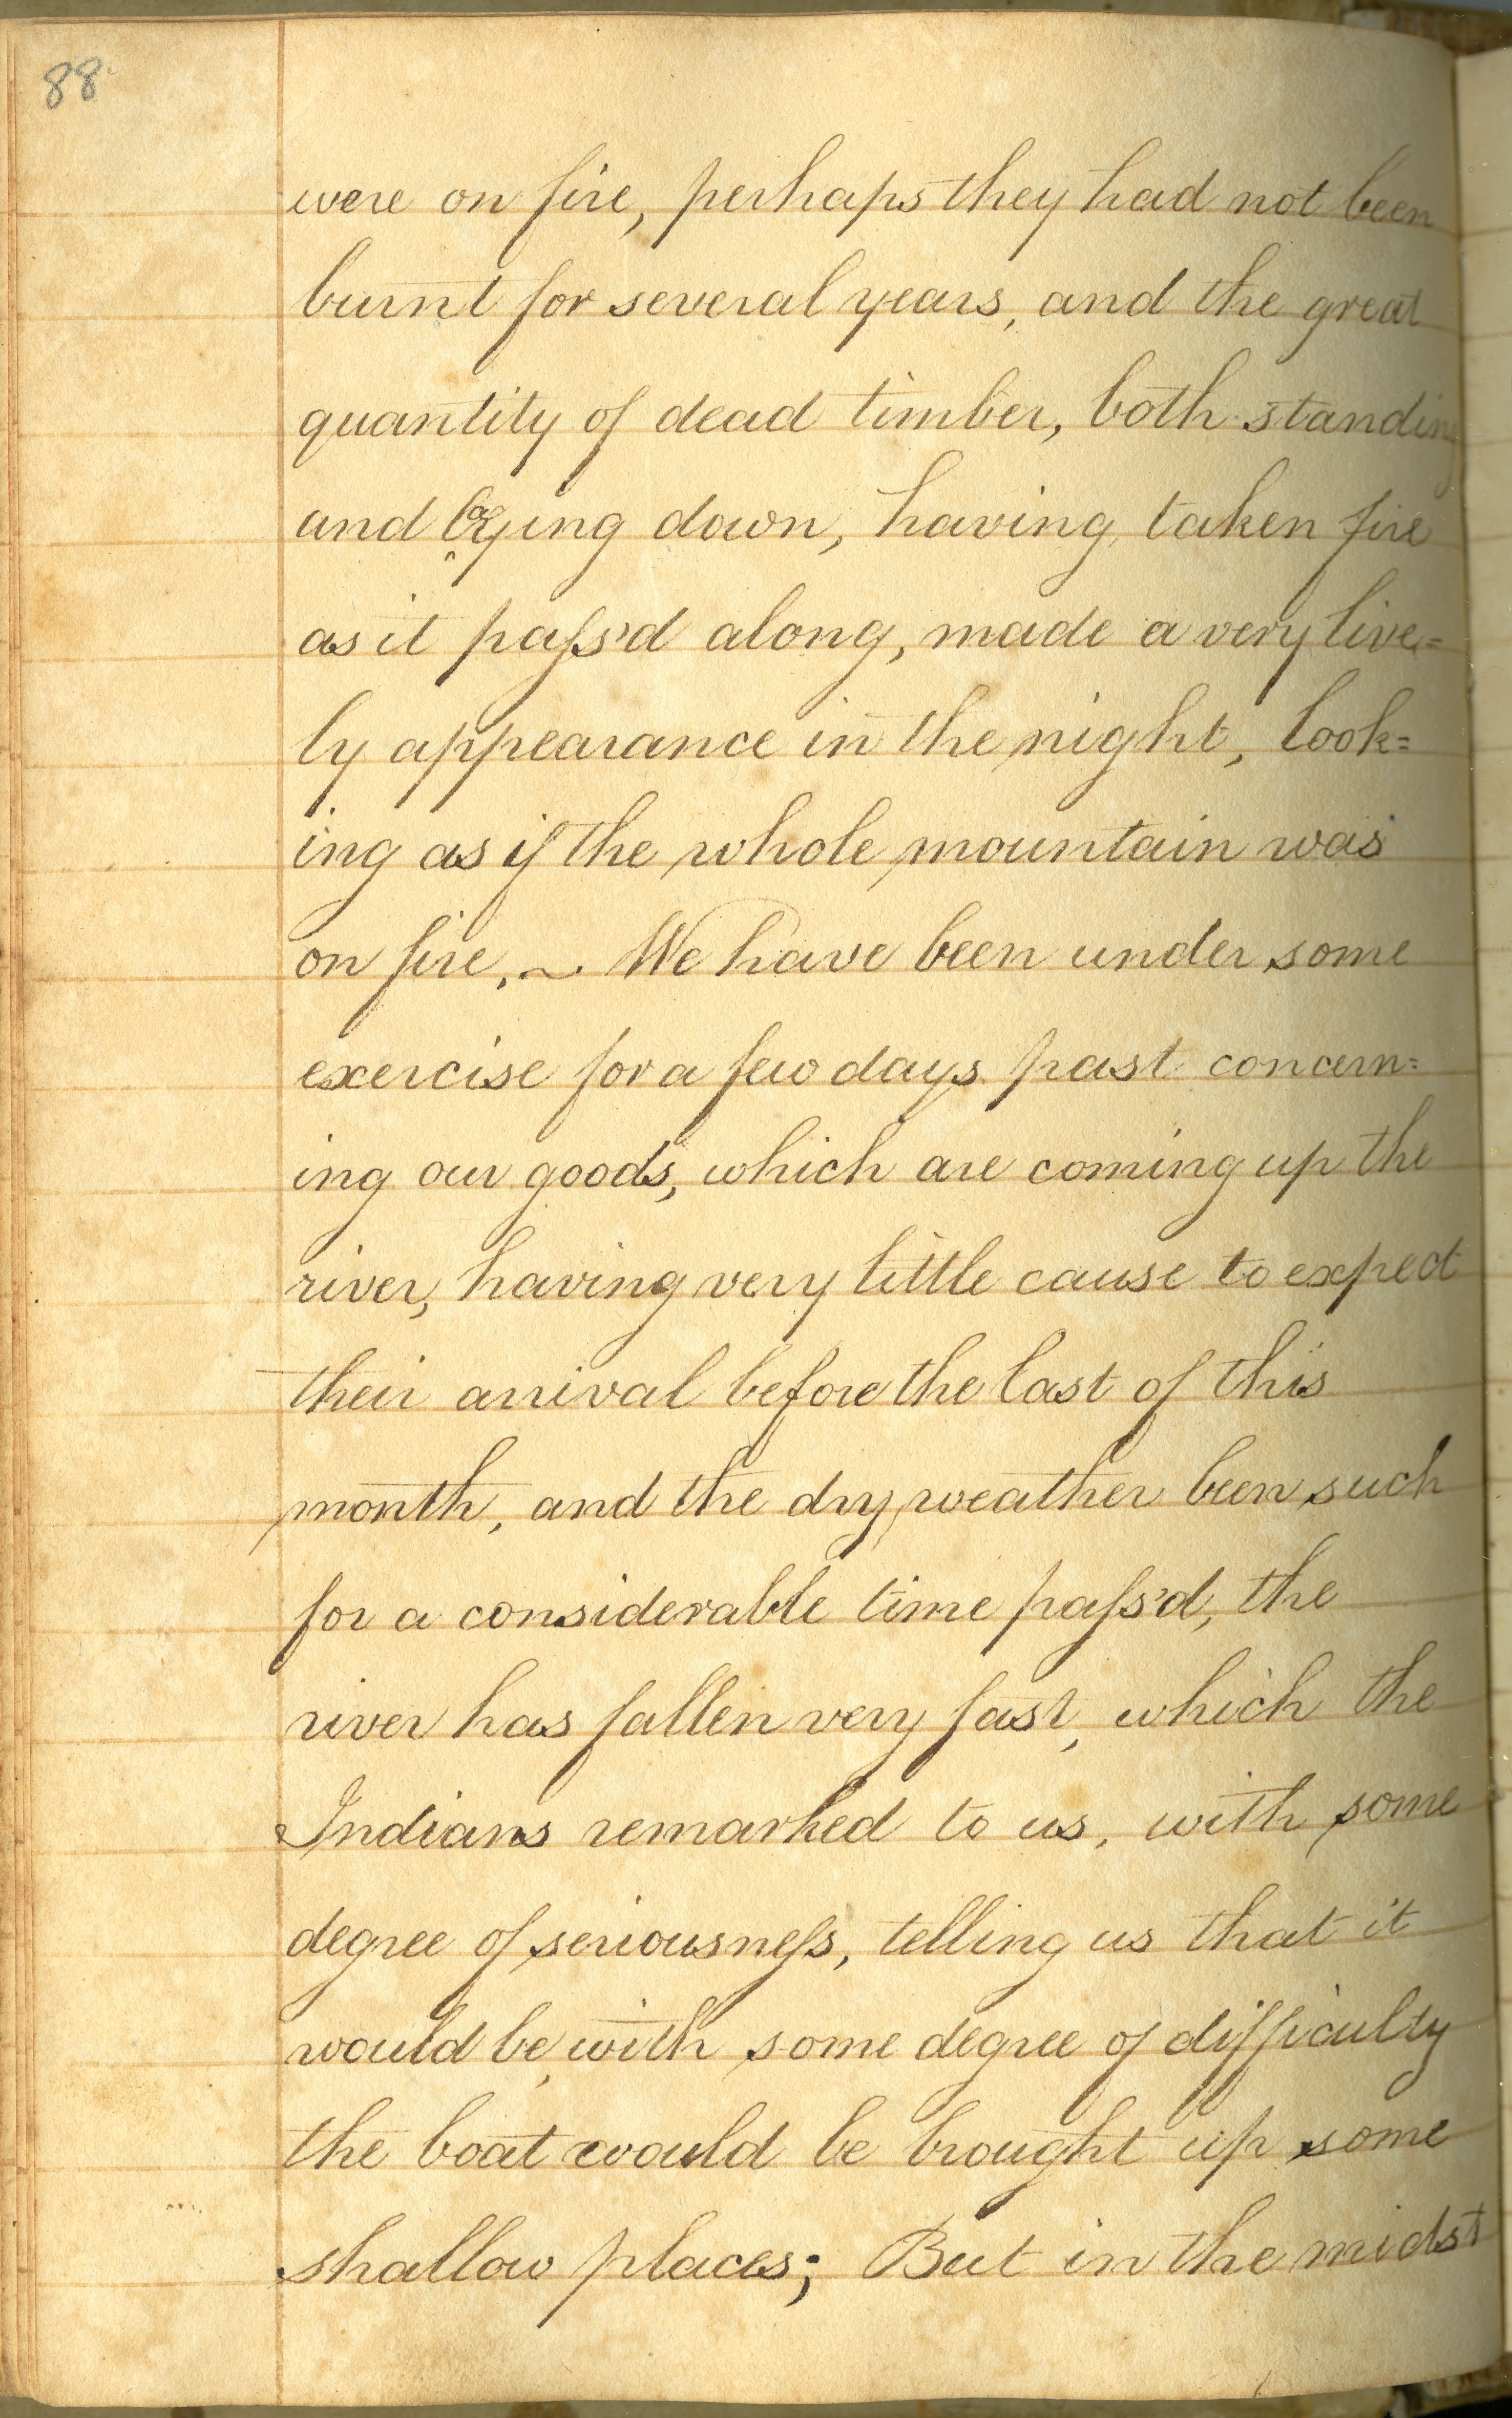 88
were on fire, perhaps they had not been
burnt for several years, and the great
quantity of dead timber, both standing
and laying down, having taken fire
as it paſs'd along, made a very live=
ly appearance in the night, look=
ing as if the whole mountain was
on fire. ~ We have been under some
exercise for a few days past concern=
ing our goods, which are coming up the
river, having very little cause to expect
their arrival before the last of this
month, and the dry weather been such
for a considerable time paſs'd, the
river has fallen very fast, which the
Indians remarked to us, with some
degree of seriousneſs, telling us that it
would be with some degree of difficulty
the boat would be brought up some
shallow places; But in the midst